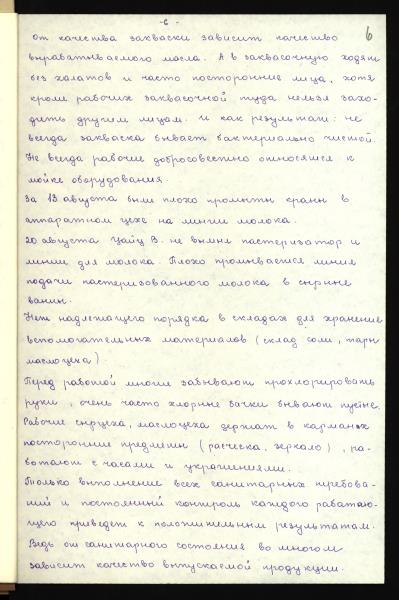 - 6 -
6
от качества закваски зависит качество
вырабатываемого масла. А в заквасочную ходят
без халатов и часто посторонние лица, хотя
кроме рабочих заквасочной туда нельзя захо-
дить другим лицам. И как результат: не
всегда закваска бывает бактериально чистой.
Не всегда рабочие добросовестно относятся к
мойке оборудования.
За 13 августа были плохо промыты краны в
аппаратном цехе на линии молока.
20 августа Цайц В. не вымыл пастеризатор и
линии для молока. Плохо промывается линия
подачи пастеризованного молока в сырные
ванны.
Нет надлежащего порядка в складах для хранение
вспомогательных материалов (склад соли, тары
маслоцеха).
Перед работой многие забывают прохлорировать
руки, очень часто хлорные бачки бывают пустые.
Рабочие сырцеха, маслоцеха держат в карманах
посторонние предметы (расческа, зеркало), ра-
ботают с часами и украшениями.
Только выполнение всех санитарных требова-
ний и постоянный контроль каждого работаю-
щего приведет к положительным результатам.
Ведь от санитарного состояния во многом
зависит качество выпускаемой продукции.